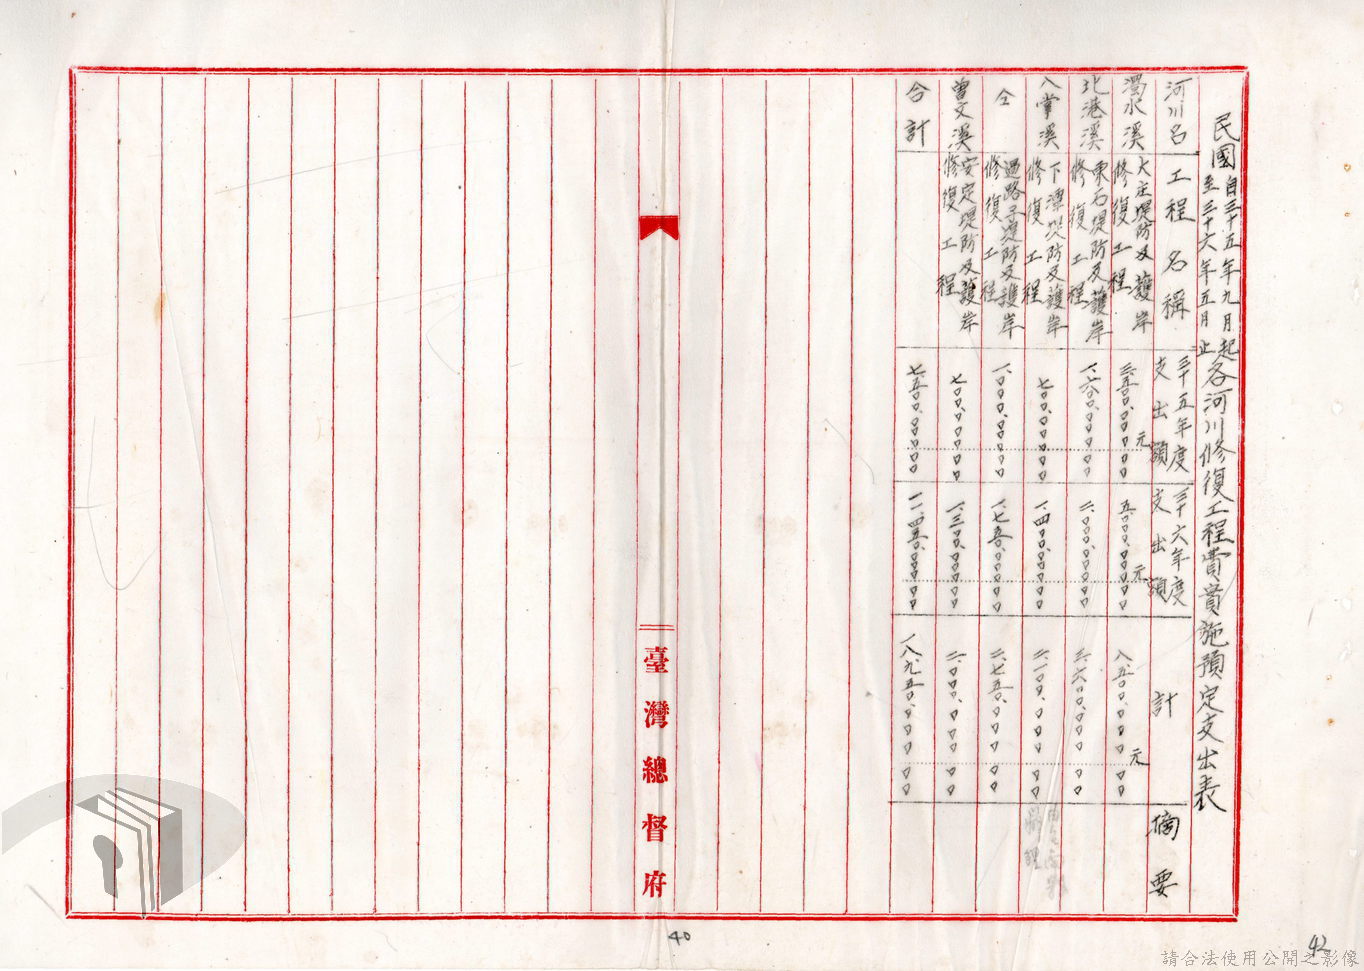 民國自三十五年九月起至三十六年五月止各河川修復工程費實施預定支出表
河川名 工程名稱 三十五年度支出額 三十六年度支出額 計 摘要
濁水溪 大庄堤防及護岸修復工程 三.五〇〇.〇〇〇元〇〇 五.〇〇〇.〇〇〇元〇〇 八.五〇〇.〇〇〇元〇〇
北港溪 東石堤防及護岸修復工程 一.六〇〇.〇〇〇〇〇 二.〇〇〇.〇〇〇〇〇 三.六〇〇.〇〇〇〇〇
八掌溪 下潭堤防及護岸修復工程 七〇〇.〇〇〇〇〇 一.四〇〇.〇〇〇〇〇 二.一〇〇.〇〇〇〇〇
仝 過路子堤防及護岸修復工程 一.〇〇〇.〇〇〇〇〇 一.七五〇.〇〇〇〇〇 二.七五〇.〇〇〇〇〇
曾文溪 安定堤防及護岸修復工程 七〇〇.〇〇〇〇〇 一.三〇〇.〇〇〇〇〇 二.〇〇〇.〇〇〇〇〇
合計 七.五〇〇.〇〇〇〇〇 一一.四五〇.〇〇〇〇〇 一八.九五〇.〇〇〇〇〇
臺灣總督府
40
42
請合法使用公開之影像